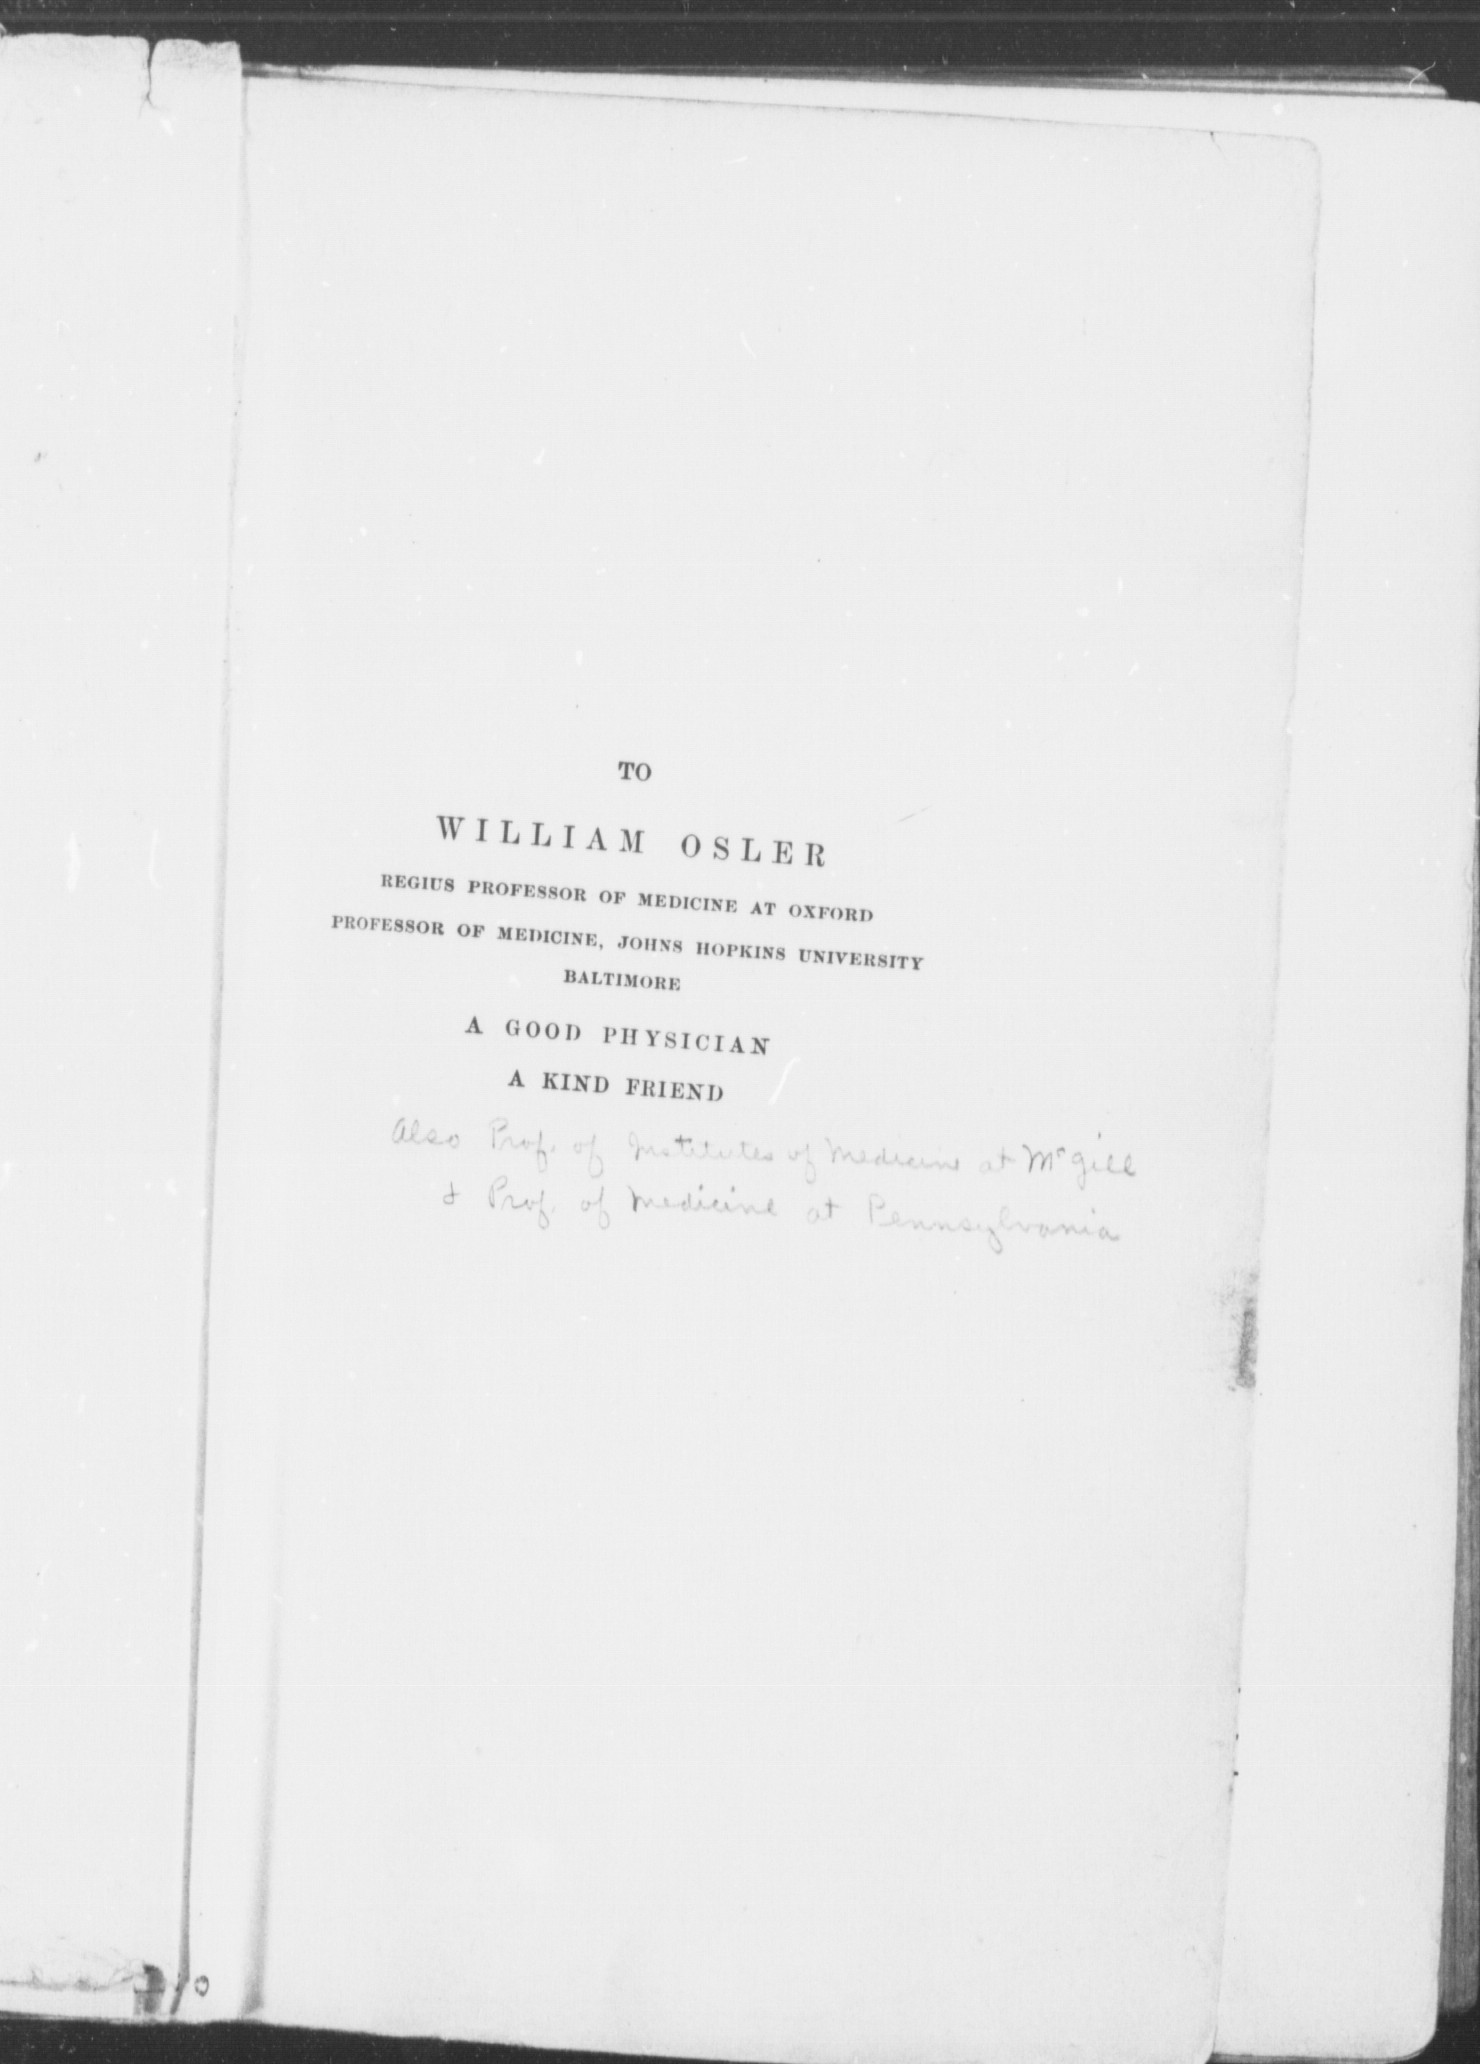 TO
WILLIAM OSLER
REGIUS PROFESSOR OF MEDICINE AT OXFORD
PROFESSOR OF MEDICINE, JOHNS HOPKINS UNIVERSITY
BALTIMORE
A GOOD PHYSICIAN
A KIND FRIEND
Also Prof. of Institutes of Medicine at McGill
& Prof. of Medicine at Pennsylvania